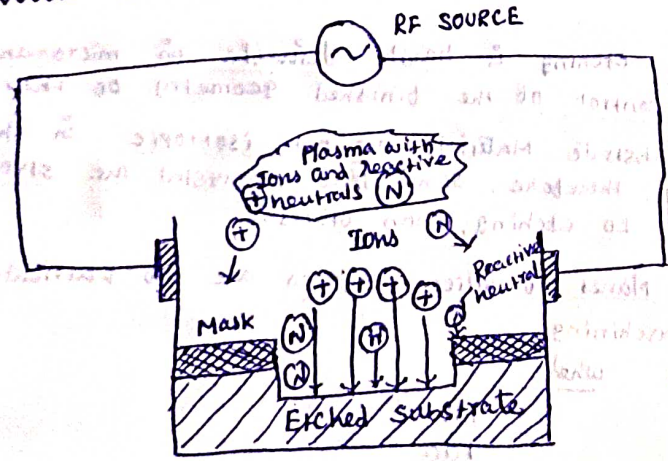 RF SOURCE
Plasma with
Ions and reactive
+ neutrals N
+
N
Ions
Reactive
neutral
+ + + +
N
Mask
N
H
N
Etched Substrate